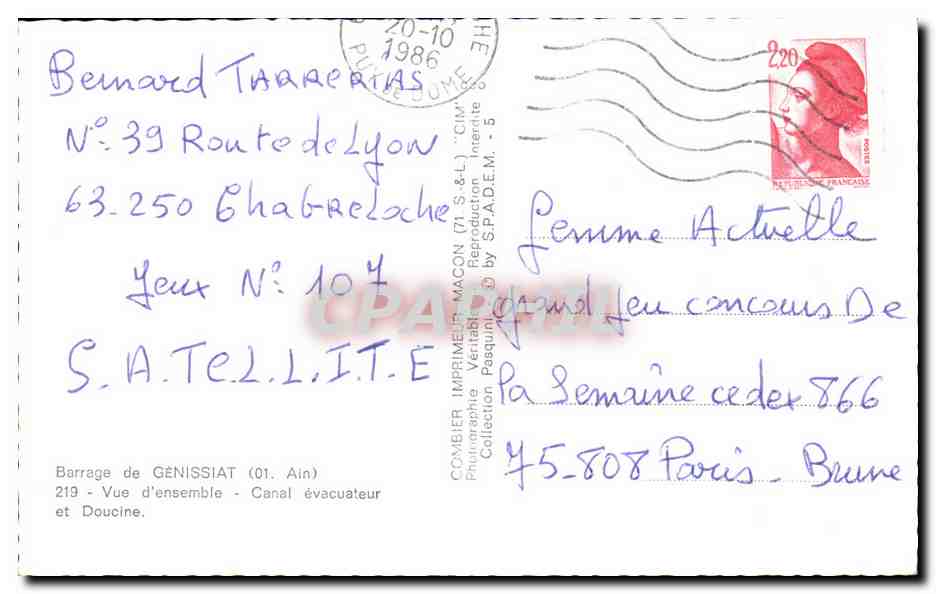 20-10
1986
PUY DE DOME
CHE
2,20
POSTES
REPUBLIQUE FRANÇAISE
Bernard TARRERIAS
N°. 39 Route de Lyon
63-250 ChabReloche
Jeux N°. 107
S.A.T.E.L.L.I.T.E
Barrage de GÉNISSIAT (01. Ain)
219 - Vue d'ensemble - Canal évacuateur
et Doucine.
COMBIER IMPRIMEUR MACON (71 S.-&-L.) "CIM"
Photographie Véritable - Reproduction Interdite
Collection Pasquini - © by S.P.A.D.E.M. - 5
femme Actuelle
grand jeu concours De
la Semaine cedex 866
75-808 Paris - Brune
CPAPHIL